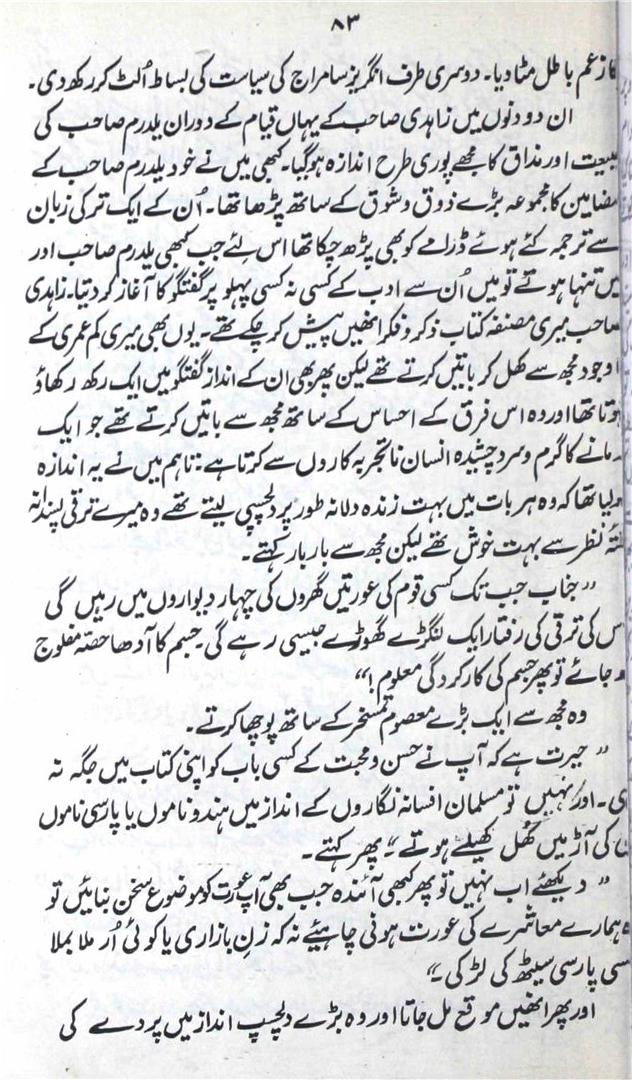 ۸۳
زعم باطل مٹا دیا۔ دوسری طرف انگریز سامراج کی سیاست کی بساط اُلٹ کر رکھ دی۔
ان دو دنوں میں زاہدی صاحب کے یہاں قیام کے دوران یلدرم صاحب کی
اور مذاق کا مجھے پوری طرح اندازہ ہو گیا۔ کبھی میں نے خود یلدرم صاحب کے
مضامین کا مجموعہ بڑے ذوق و شوق کے ساتھ پڑھا تھا۔ اُن کے ایک ترکی زبان
سے ترجمہ کئے ہوئے ڈرامے کو بھی پڑھ چکا تھا اس لئے جب کبھی یلدرم صاحب اور
میں تنہا ہوتے تو میں اُن سے ادب کے کسی نہ کسی پہلو پر گفتگو کا آغاز کر دیتا۔ زاہدی
صاحب میری مصنفہ کتاب ذکر و فکر انھیں پیش کر چکے تھے۔ یوں بھی میری کم عمری کے
مجھ سے کھل کر باتیں کرتے تھے لیکن پھر بھی ان کے انداز گفتگو میں ایک رکھ رکھاؤ
ہوتا تھا اور وہ اس فرق کے احساس کے ساتھ مجھ سے باتیں کرتے تھے جو ایک
کا گرم و سرد چشیدہ انسان ناتجربہ کاروں سے کرتا ہے۔ تاہم میں نے یہ اندازہ
تھا کہ وہ ہر بات میں بہت زندہ دلانہ طور پر دلچسپی لیتے تھے وہ میرے ترقی پسندانہ
نظر سے بہت خوش تھے لیکن مجھ سے بار بار کہتے۔
”جناب جب تک کسی قوم کی عورتیں گھروں کی چہار دیواروں میں رہیں گی
اس کی ترقی کی رفتار ایک لنگڑے گھوڑے جیسی رہے گی۔ جسم کا آدھا حصّہ مفلوج
جائے تو پھر جسم کی کارکردگی معلوم!“
وہ مجھ سے ایک بڑے معصوم تمسخر کے ساتھ پوچھا کرتے۔
”حیرت ہے کہ آپ نے حسن و محبت کے کسی باب کو اپنی کتاب میں جگہ نہ
دی۔ اور نہیں تو مسلمان افسانہ نگاروں کے انداز میں ہندو ناموں یا پارسی ناموں
کی آڑ میں گھل کھیلے ہوتے“۔ پھر کہتے۔
”دیکھئے اب نہیں تو پھر کبھی آئندہ جب بھی آپ عورت کو موضوع سخن بنائیں تو
ہمارے معاشرے کی عورت ہونی چاہیئے نہ کہ زنِ بازاری یا کوئی اُرملا بملا
کسی پارسی سیٹھ کی لڑکی۔“
اور پھر انھیں موقع مل جاتا اور وہ بڑے دلچسپ انداز میں پردے کی